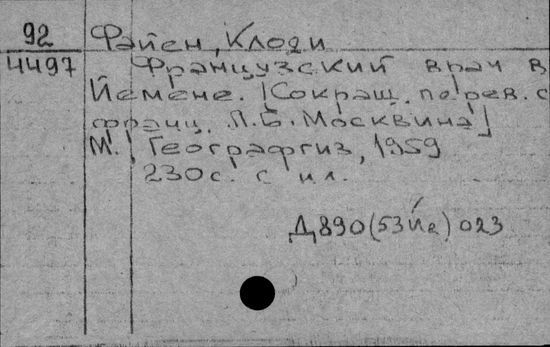 92 Файен, Клоди
4497 Французский врач в
Йемене. [Сокращ. перев. с
франц. Л.Б. Москвина]
М., Географгиз, 1959
230с. с ил.
Д890(53Йе)023